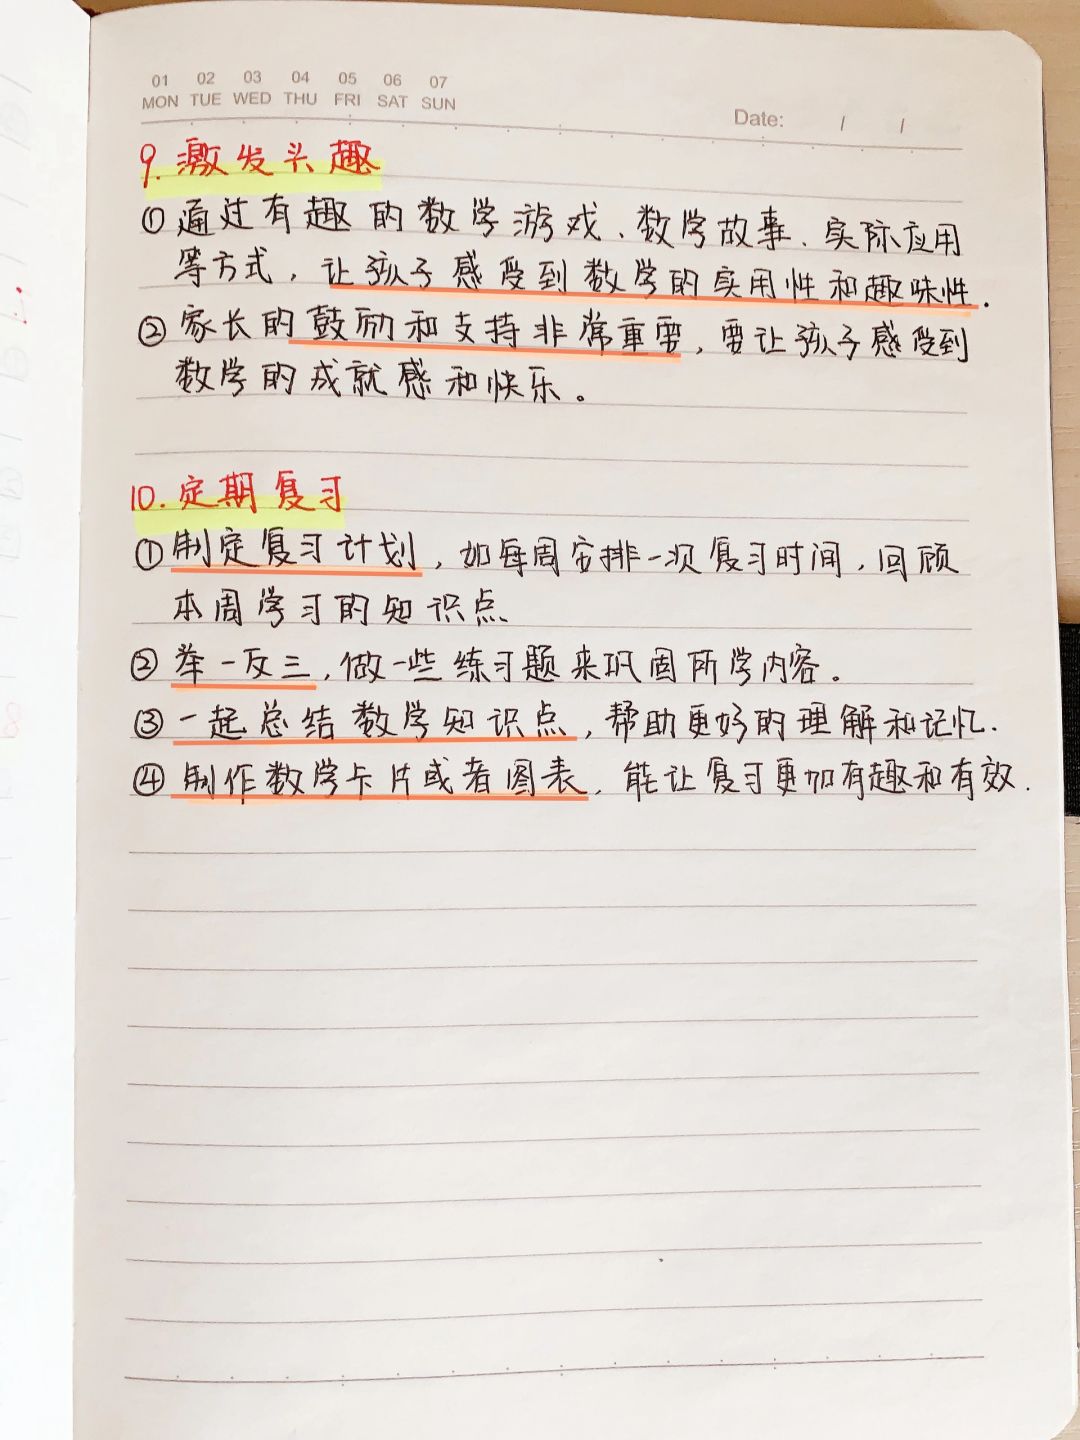 01 02 03 04 05 06 07
MON TUE WED THU FRI SAT SUN
Date: / /
9. 激发头趣
①通过有趣的数学游戏、数学故事、实际应用
等方式，让孩子感受到数学的实用性和趣味性.
②家长的鼓励和支持非常重要，要让孩子感受到
数学的成就感和快乐。
10. 定期复习
①制定复习计划，如每周安排一次复习时间，回顾
本周学习的知识点
②举一反三，做一些练习题来巩固所学内容。
③一起总结数学知识点，帮助更好的理解和记忆.
④制作数学卡片或者图表，能让复习更加有趣和有效.